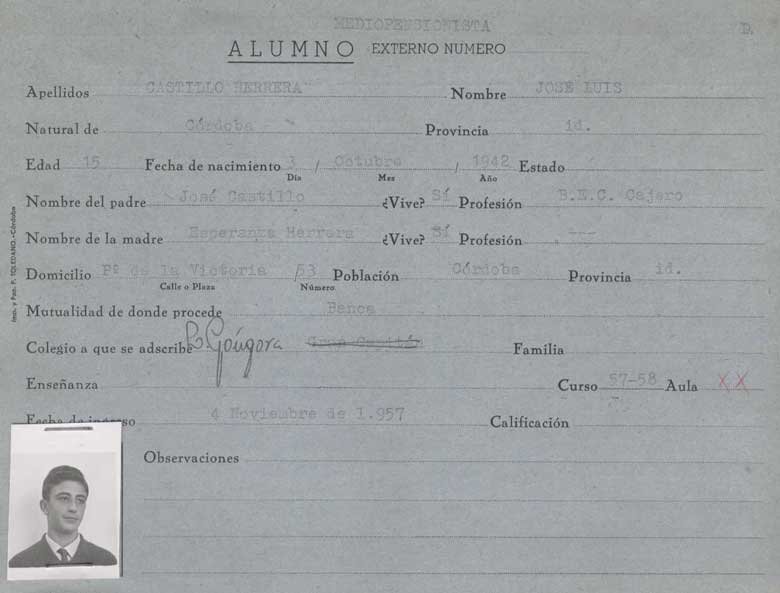 MEDIOPENSIONISTA D.
ALUMNO EXTERNO NUMERO
Apellidos CASTILLO HERRERA Nombre JOSE LUIS
Natural de Córdoba Provincia id.
Edad 15 Fecha de nacimiento 3 / Octubre / 1942 Estado
Día Mes Año
Nombre del padre José Castillo ¿Vive? Sí Profesión B.E.C. Cajero
Nombre de la madre Esperanza Herrera ¿Vive? Sí Profesión ---
Domicilio Pº de la Victoria /53 Población Córdoba Provincia id.
Calle o Plaza Número
Mutualidad de donde procede Banca
Colegio a que se adscribe Góngora Gran Capitán Familia
Enseñanza Curso 57-58 Aula XX
Fecha de ingreso 4 Noviembre de 1.957 Calificación
Observaciones
Imp. y Pap. P. TOLEDANO.-Córdoba